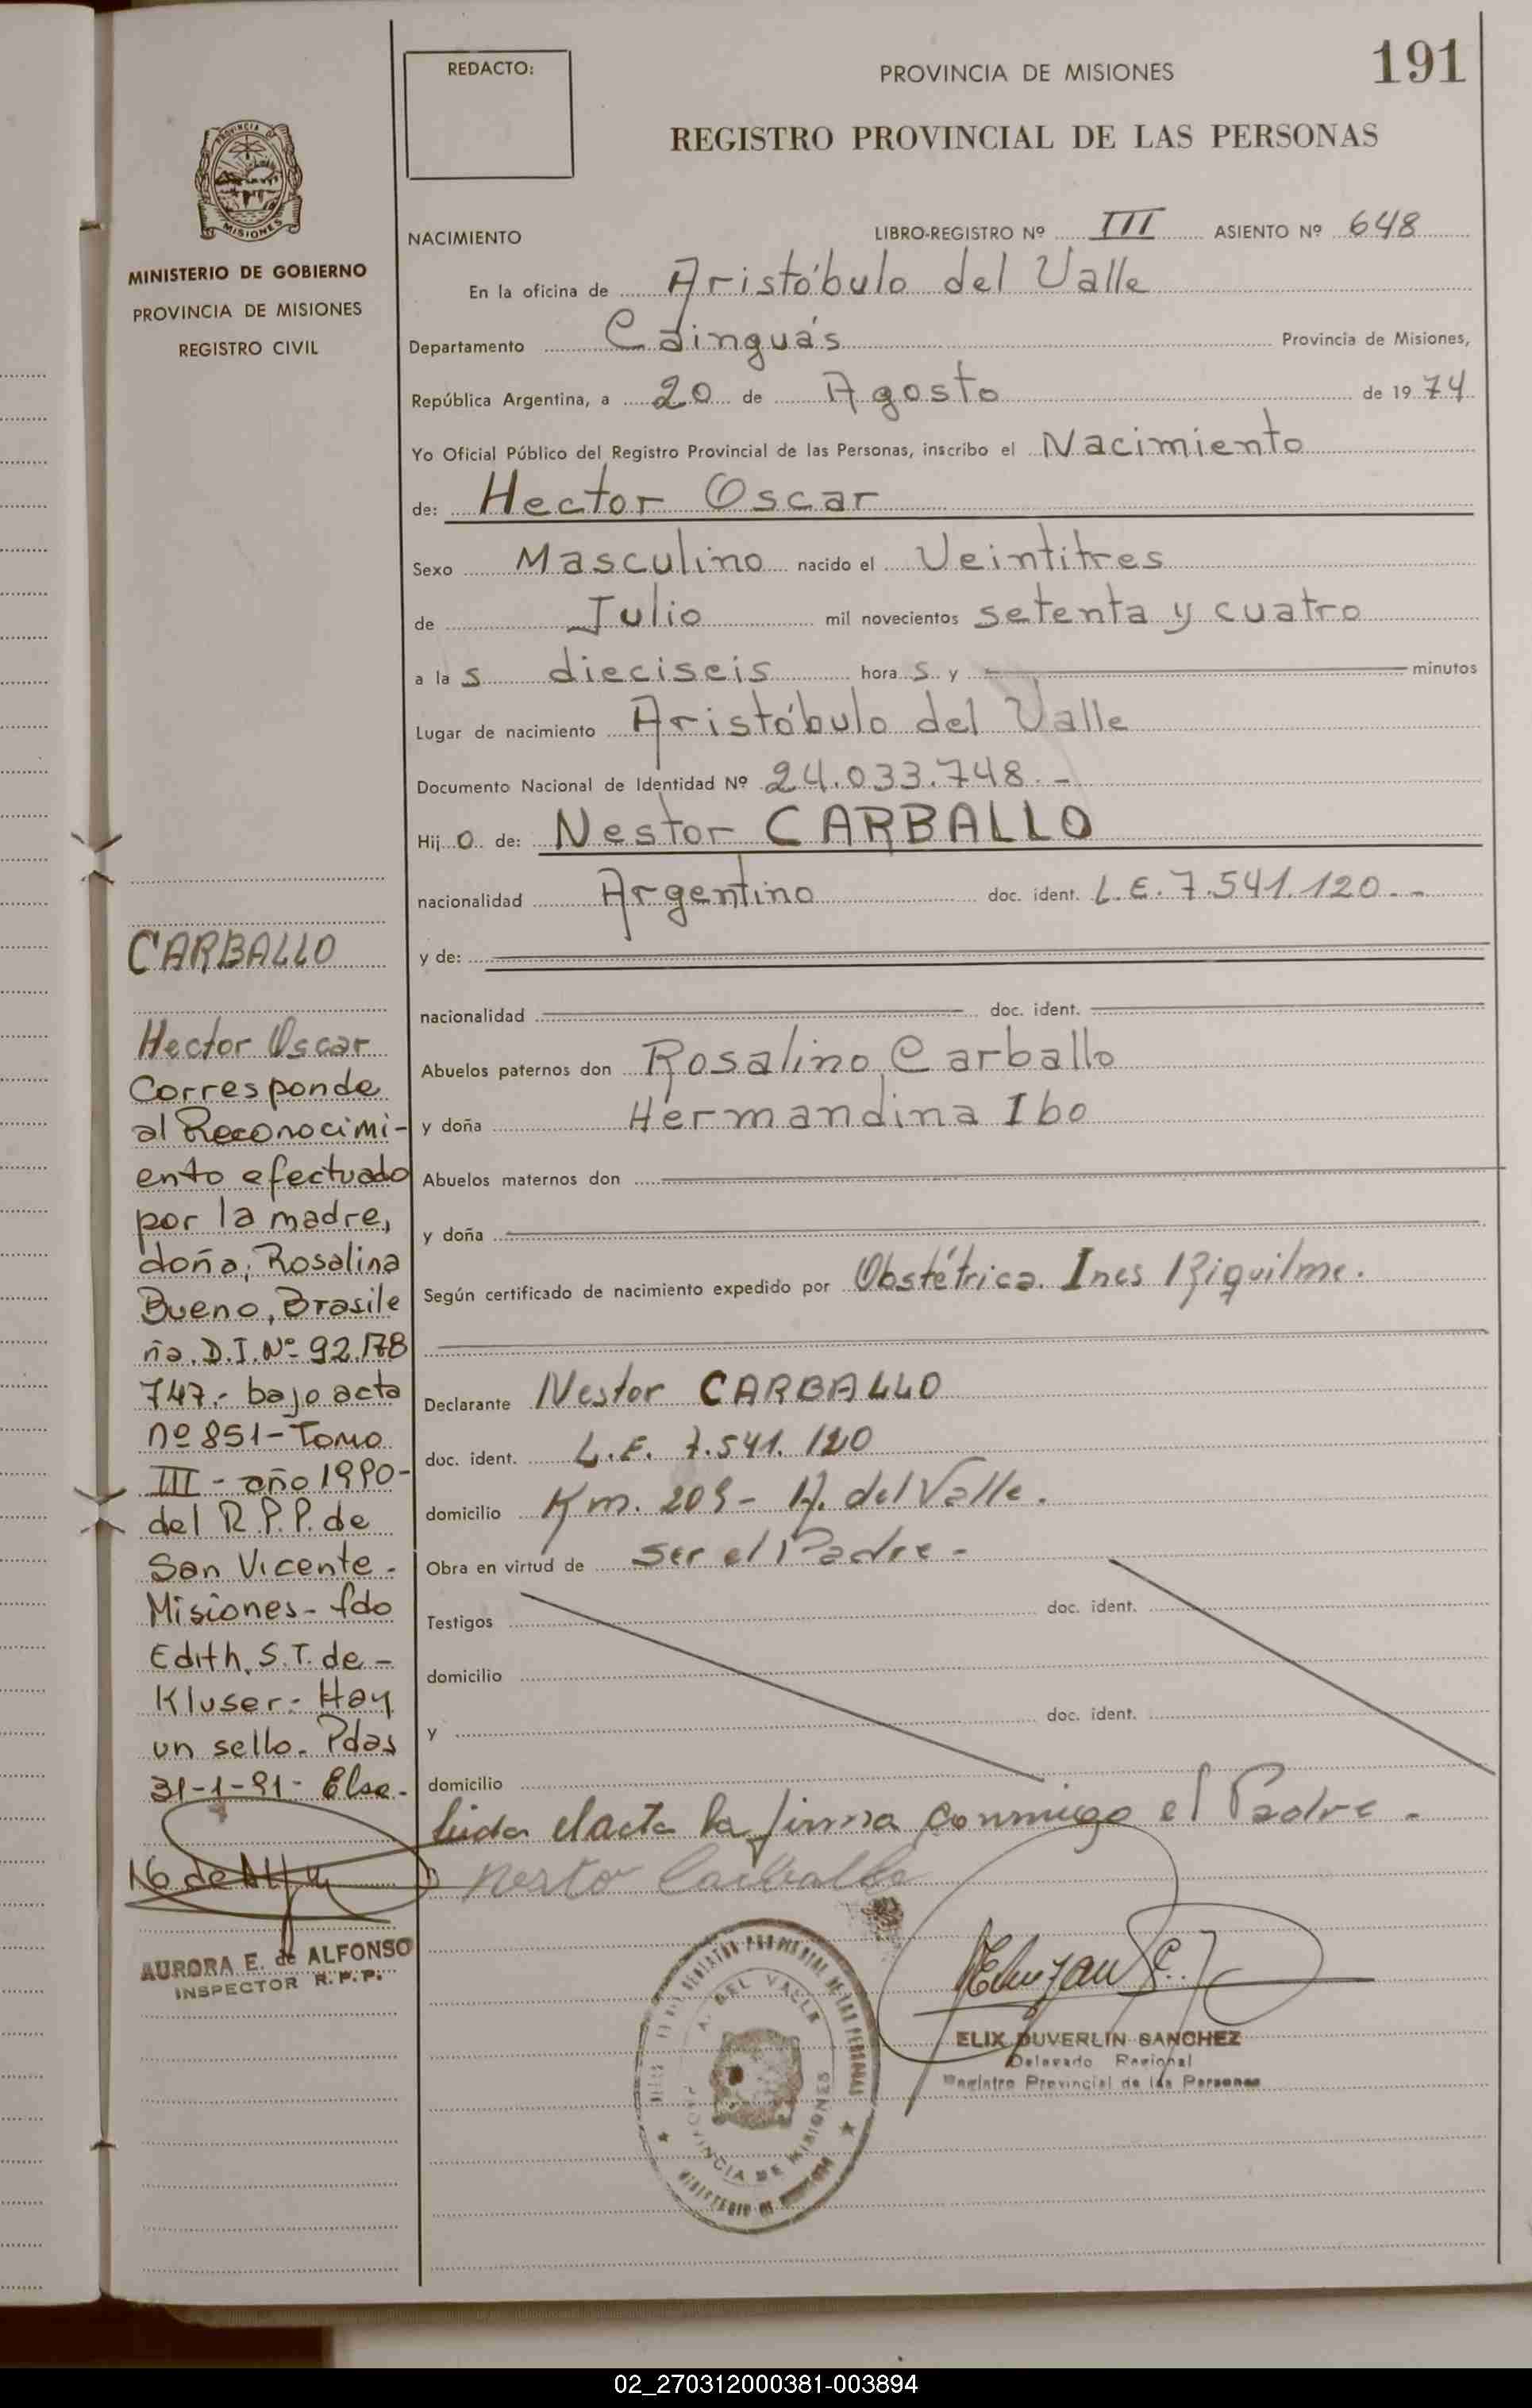 REDACTO:
PROVINCIA DE MISIONES
191
REGISTRO PROVINCIAL DE LAS PERSONAS
MISIONES
MINISTERIO DE GOBIERNO
PROVINCIA DE MISIONES
REGISTRO CIVIL
NACIMIENTO LIBRO-REGISTRO Nº III ASIENTO Nº 648
En la oficina de Aristóbulo del Valle
Departamento Cainguás Provincia de Misiones,
República Argentina, a 20 de Agosto de 1974
Yo Oficial Público del Registro Provincial de las Personas, inscribo el Nacimiento
de: Hector Oscar
Sexo Masculino nacido el Veintitres
de Julio mil novecientos setenta y cuatro
a las dieciseis horas y minutos
Lugar de nacimiento Aristóbulo del Valle
Documento Nacional de Identidad Nº 24.033.748.-
Hijo de: Nestor CARBALLO
nacionalidad Argentino doc. ident. L.E. 7.541.120.-
y de:
nacionalidad doc. ident.
Abuelos paternos don Rosalino Carballo
y doña Hermandina Ibo
Abuelos maternos don
y doña
Según certificado de nacimiento expedido por Obstétrica. Ines
Declarante Nestor CARBALLO
doc. ident. L.E. 7.541.120
domicilio Km. 209 - A. del Valle.
Obra en virtud de ser el Padre -
Testigos doc. ident.
domicilio
y doc. ident.
domicilio
Leida el acta la firma conmigo el Padre.
CARBALLO
Hector Oscar
Corresponde
al Reconocimi-
ento efectuado
por la madre,
doña; Rosalina
Bueno, Brasile
ña. D.I. Nº 92.178
747.- bajo acta
nº 851 - Tomo
III - año 1990-
del R.P.P. de
San Vicente -
Misiones - fdo
Edith. S.T. de -
Kluser - Hay
un sello. Pdas
31-1-91 -
AURORA E. de ALFONSO
INSPECTOR R.P.P.
A. DEL VALLE
PROVINCIA DE MISIONES
ELIX DUVERLIN SANCHEZ
Delegado Regional
Registro Provincial de las Personas
02_270312000381-003894